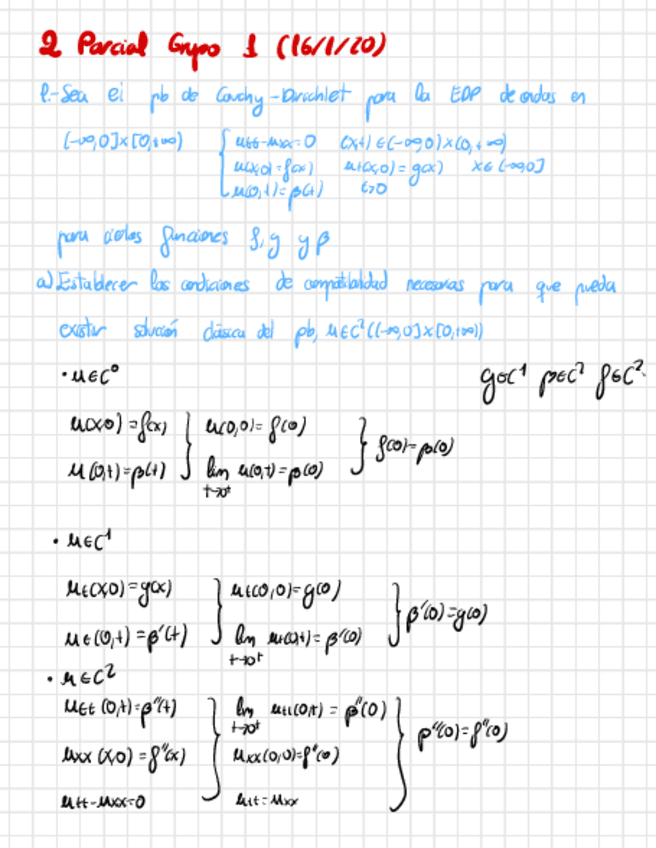 2 Parcial Grupo 1 (16/1/20)
1.- Sea el pb de Cauchy-Dirichlet para la EDP de ondas en
(-∞,0]×[0,+∞) { utt-uxx=0 (x,t)∈(-∞,0)×(0,+∞)
u(x,0)=f(x) ut(x,0)=g(x) x∈(-∞,0]
u(0,t)=β(t) t≥0
para ciertas funciones f, g y β
a) Establecer las condiciones de compatibilidad necesarias para que pueda
existir solución clásica del pb, u∈C²((-∞,0]×[0,+∞))
• u∈C⁰ g∈C¹ β∈C² f∈C²
u(x,0)=f(x) } u(0,0)=f(0) } f(0)=β(0)
u(0,t)=β(t) lim t→0⁺ u(0,t)=β(0)
• u∈C¹
ut(x,0)=g(x) } ut(0,0)=g(0) } β'(0)=g(0)
ut(0,t)=β'(t) lim t→0⁺ ut(0,t)=β'(0)
• u∈C²
utt(0,t)=β''(t) } lim t→0⁺ utt(0,t)=β''(0) } β''(0)=f''(0)
uxx(x,0)=f''(x) uxx(0,0)=f''(0)
utt-uxx=0 utt=uxx